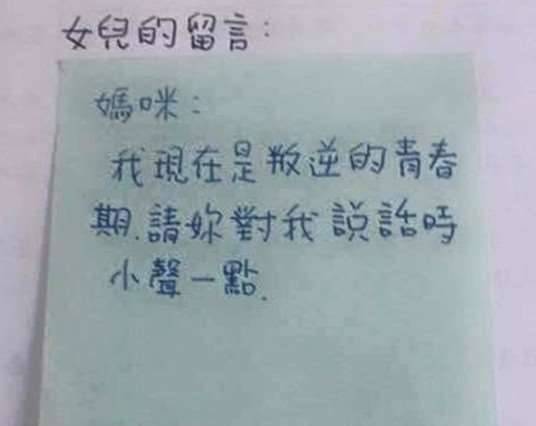 女兒的留言:
媽咪:
我現在是叛逆的青春
期.請妳對我説話時
小聲一點.